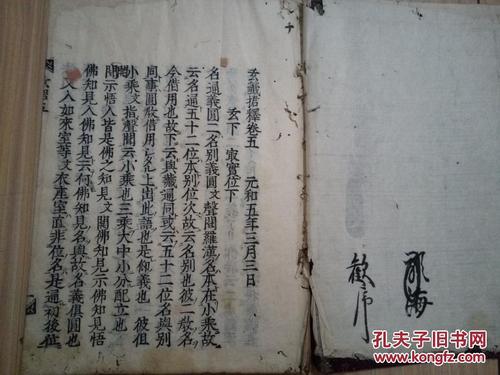 玄籤捃釋卷五 元和五年三月三日
玄下 𡨴實位下
名通義圓二名別義圓文聲聞羅漢名本在小乘故
云名通五十二位本別位次故云名別也彼二教名
今借用也故下云與藏通同或云五十二位名與別
同事圓教借用之名上出此語也是仰義也 彼俎
小乘文指聲聞云小乘也三乘大中小分配立也
開示悟入皆是佛之知見文開佛知見示佛知見悟
佛知見入佛知見云何佛知見名與故名義俱圓也
又入如來室等文衣座室直非位名是通初後位
海
歡序
孔夫子旧书网
www.kongfz.com